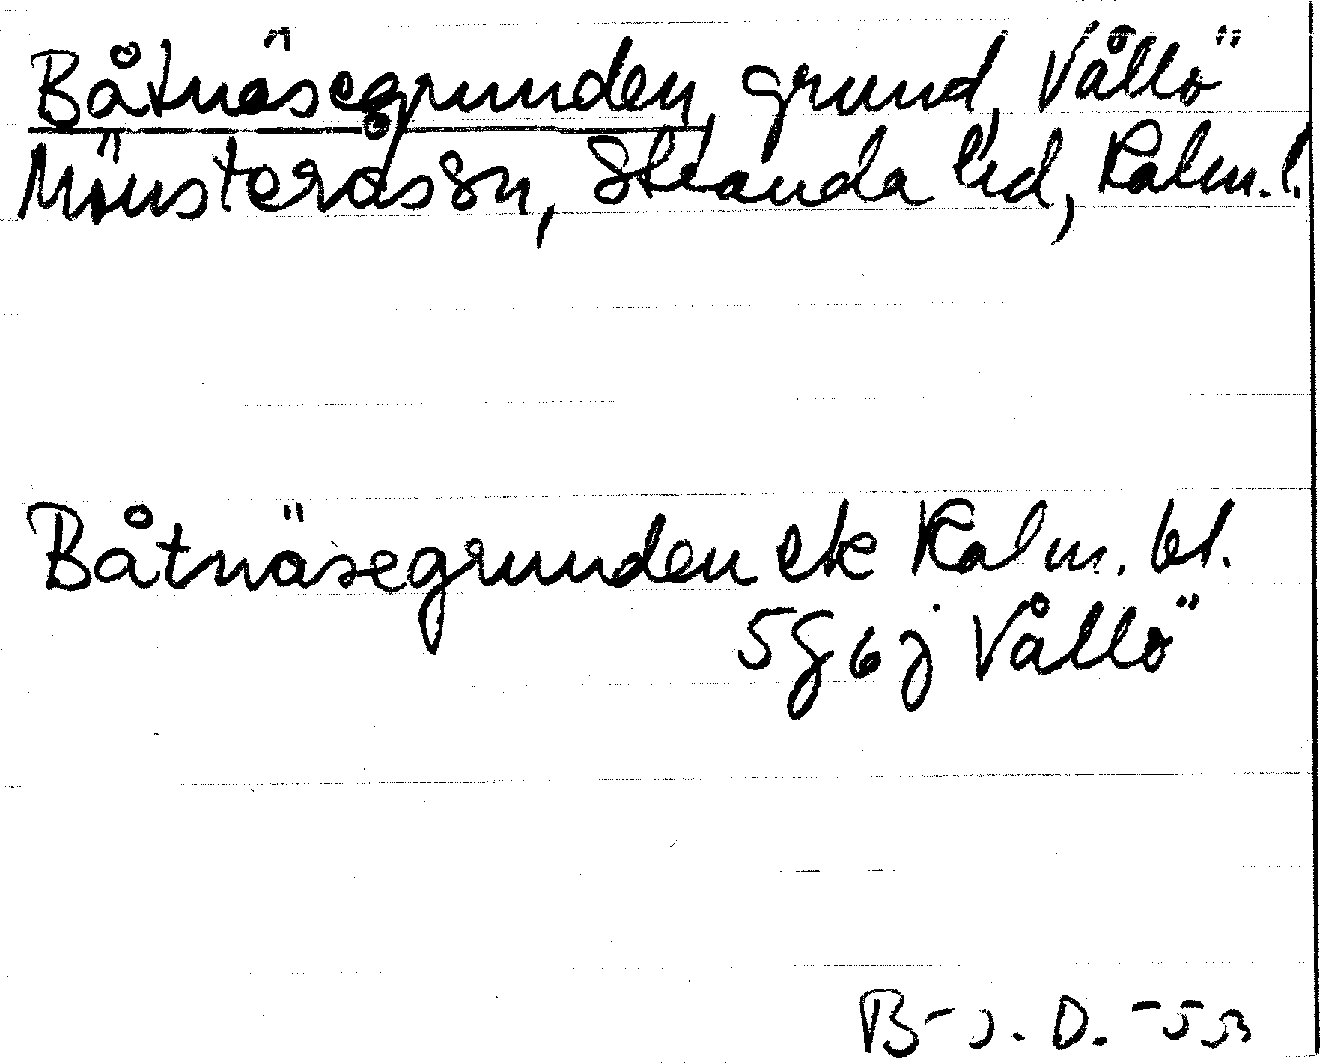 Båtnäsegrunden, grund, Vållö
Mönsterås sn, Stranda hd, Kalm. l.
Båtnäsegrunden ek Kalm. bl.
5G6j Vållö
B-J. D. -53